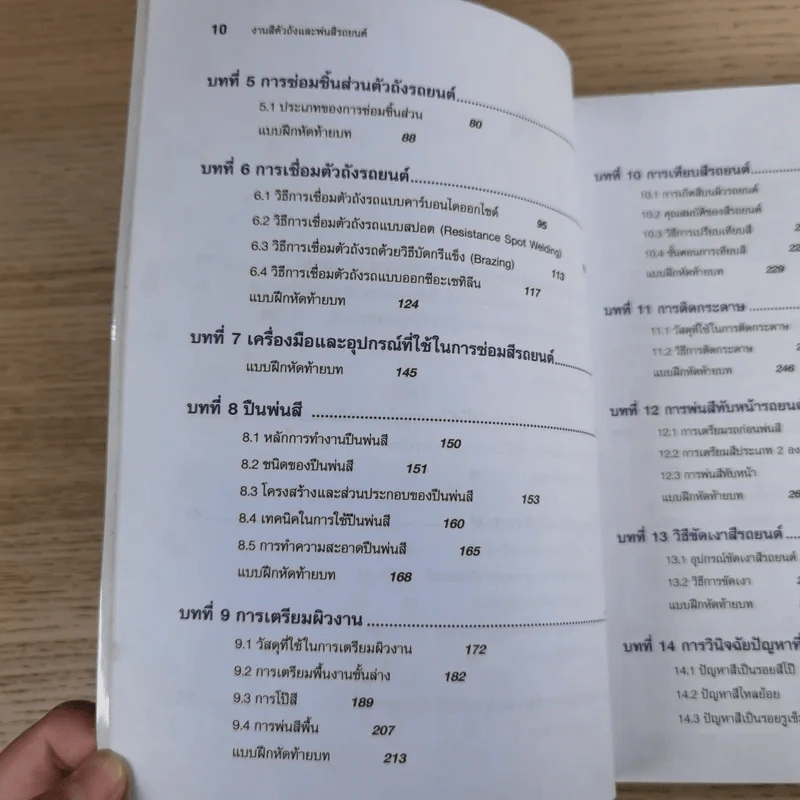 10 งานสีตัวถังและพ่นสีรถยนต์
บทที่ 5 การซ่อมชิ้นส่วนตัวถังรถยนต์
5.1 ประเภทของการซ่อมชิ้นส่วน 80
แบบฝึกหัดท้ายบท 88
บทที่ 6 การเชื่อมตัวถังรถยนต์
6.1 วิธีการเชื่อมตัวถังรถแบบคาร์บอนไดออกไซด์ 95
6.2 วิธีการเชื่อมตัวถังรถแบบสปอต (Resistance Spot Welding)
6.3 วิธีการเชื่อมตัวถังรถด้วยวิธีบัดกรีแข็ง (Brazing) 113
6.4 วิธีการเชื่อมตัวถังรถแบบออกซิอะเซทิลีน 117
แบบฝึกหัดท้ายบท 124
บทที่ 7 เครื่องมือและอุปกรณ์ที่ใช้ในการซ่อมสีรถยนต์
แบบฝึกหัดท้ายบท 145
บทที่ 8 ปืนพ่นสี
8.1 หลักการทำงานปืนพ่นสี 150
8.2 ชนิดของปืนพ่นสี 151
8.3 โครงสร้างและส่วนประกอบของปืนพ่นสี 153
8.4 เทคนิคในการใช้ปืนพ่นสี 160
8.5 การทำความสะอาดปืนพ่นสี 165
แบบฝึกหัดท้ายบท 168
บทที่ 9 การเตรียมผิวงาน
9.1 วัสดุที่ใช้ในการเตรียมผิวงาน 172
9.2 การเตรียมพื้นงานชั้นล่าง 182
9.3 การโป๊สี 189
9.4 การพ่นสีพื้น 207
แบบฝึกหัดท้ายบท 213
บทที่ 10 การเทียบสีรถยนต์
10.1 การเกิดสีบนผิวรถยนต์
10.2 คุณสมบัติของสีรถยนต์
10.3 วิธีการเปรียบเทียบสี
10.4 ขั้นตอนการเทียบสี
แบบฝึกหัดท้ายบท 229
บทที่ 11 การติดกระดาษ
11.1 วัสดุที่ใช้ในการติดกระดาษ
11.2 วิธีการติดกระดาษ
แบบฝึกหัดท้ายบท 246
บทที่ 12 การพ่นสีทับหน้ารถยนต์
12.1 การเตรียมรถก่อนพ่นสี
12.2 การเตรียมสีประเภท 2 อง
12.3 การพ่นสีทับหน้า
แบบฝึกหัดท้ายบท
บทที่ 13 วิธีขัดเงาสีรถยนต์
13.1 อุปกรณ์ขัดเงาสีรถยนต์
13.2 วิธีการขัดเงา
แบบฝึกหัดท้ายบท
บทที่ 14 การวินิจฉัยปัญหาที่
14.1 ปัญหาสีเป็นรอยสีโป๊
14.2 ปัญหาสีไหลย้อย
14.3 ปัญหาสีเป็นรอยรูเข็ม